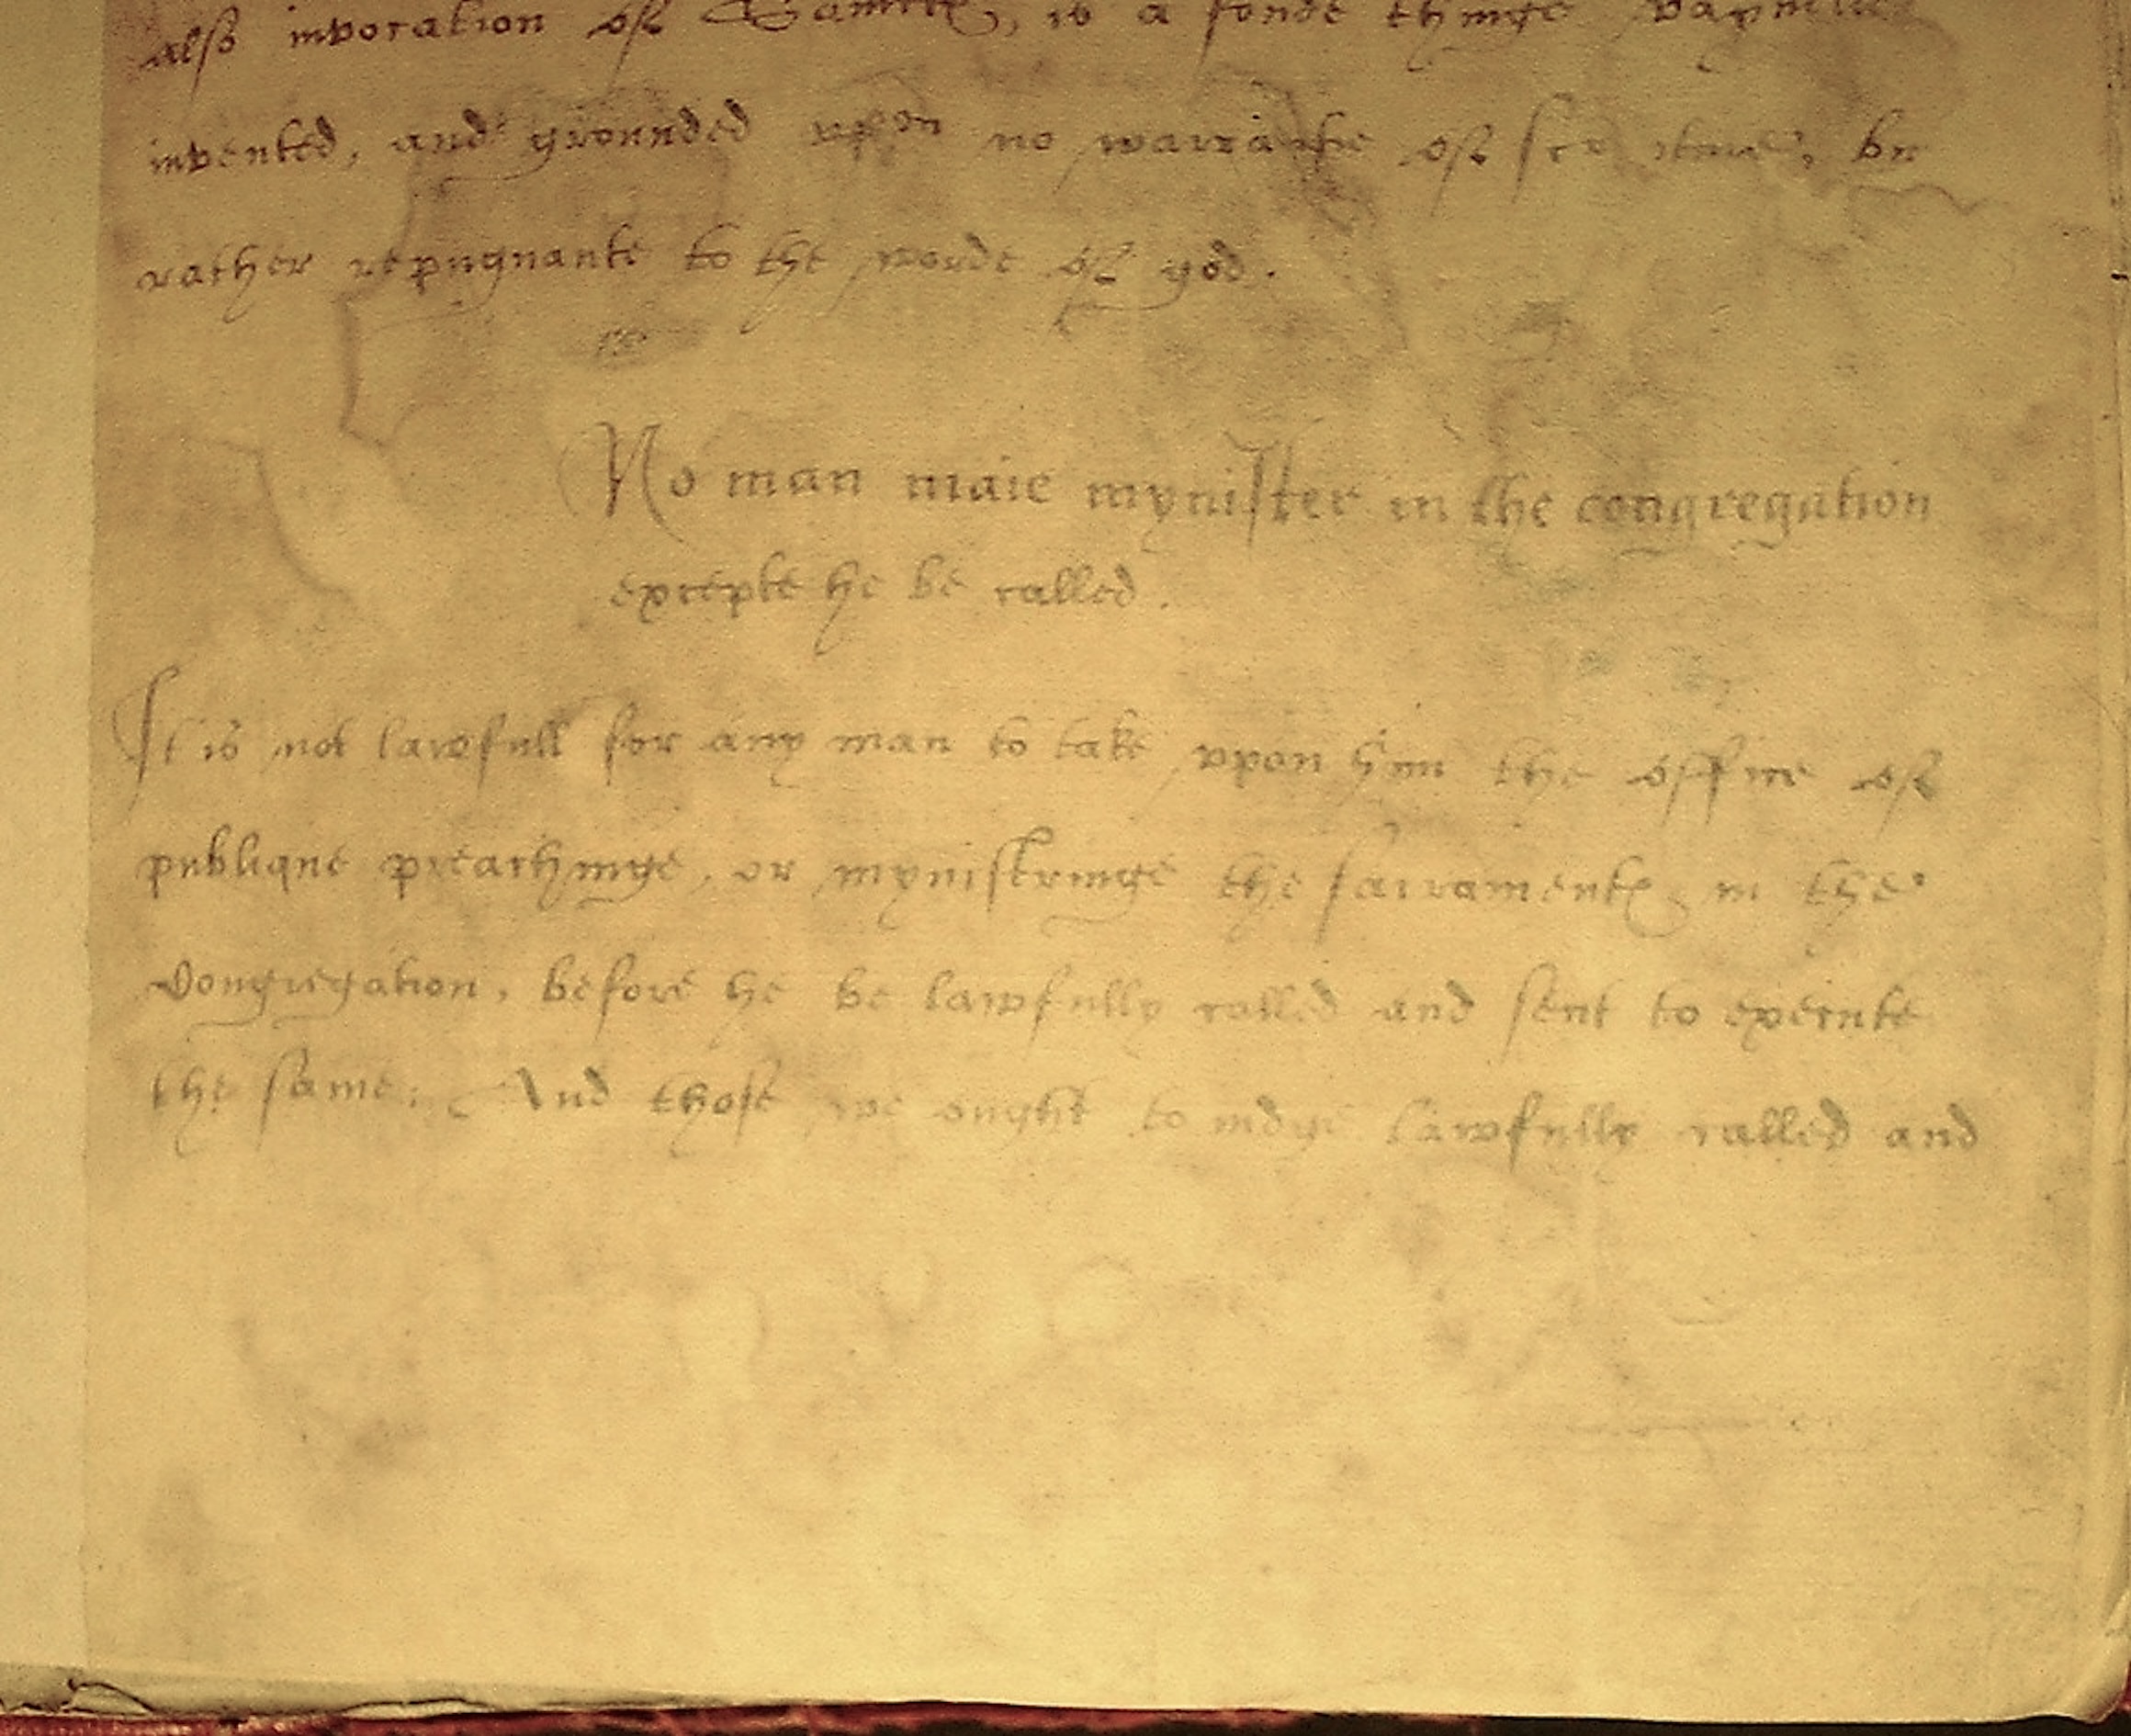 also invocation of Sainctes, is a fonde thinge vaynelie
invented, and grounded vpon no warrante of scripture, but
rather repugnante to the worde of god.
No man maie mynister in the congregation
excepte he be called.
It is not lawfull for any man to take vpon him the office of
publique preachinge, or mynistringe the sacramentes in the
Congregation, before he be lawfully called and sent to execute
the same. And those we ought to iudge lawfully called and